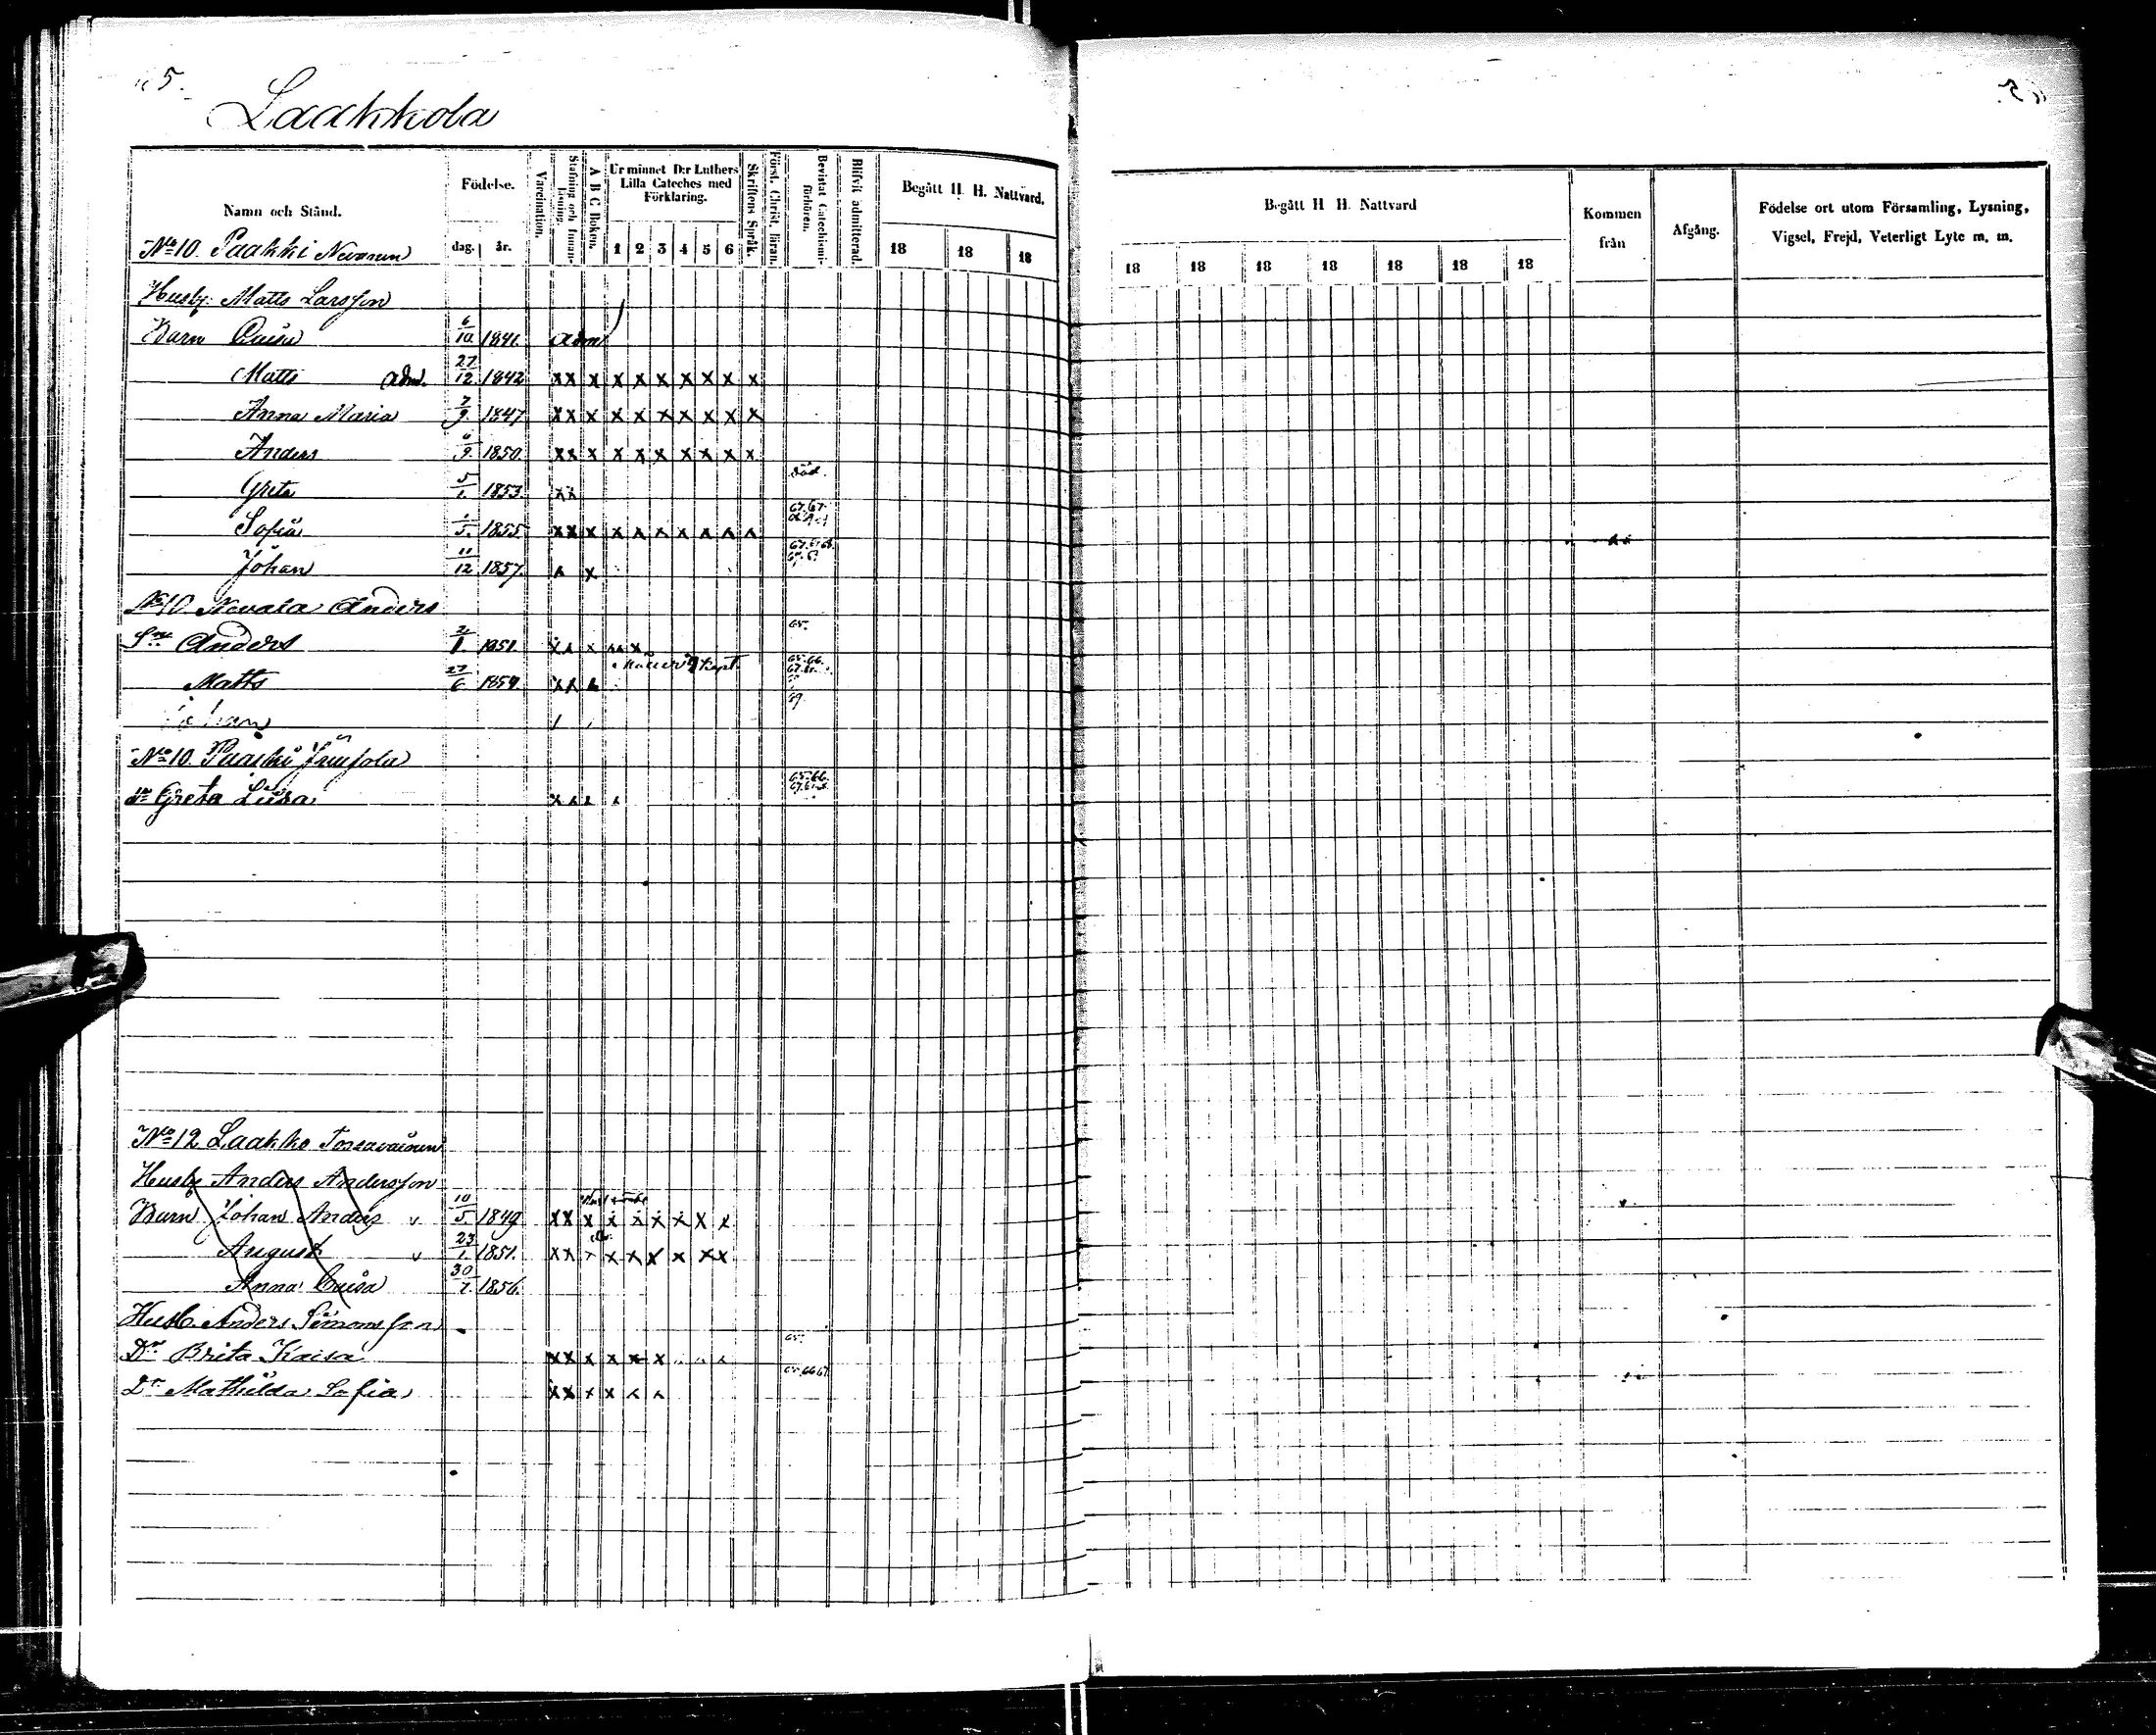 5.
Laakkola
Namn och Stånd. Födelse. dag. år. Vaccination. Stafning och Innan-läsning. A B C Boken. Ur minnet D:r Luthers Lilla Cateches med Förklaring. 1 2 3 4 5 6 Skriftens Språk. Först. Christ. läran. Bevistat Catechismi-förhören. Blifvit admitterad. Begått H. H. Nattvard. 18 18 18
Begått H H. Nattvard 18 18 18 18 18 18 18 Kommen från Afgång. Födelse ort utom Församling, Lysning, Vigsel, Frejd, Veterligt Lyte m. m.
No 10. Paakki
Husb: Matts Larsson
Barn Caisa 6/10 1841. adm
Matts adm. 27/12 1842 x x x x x x x x x x
Anna Maria 7/9 1847 x x x x x x x x x x
Anders 6/9. 1850. x x x x x x x x x x
Greta 5/1. 1853. x x död.
Sofia 1/5. 1855. x x x x x x x x x x
Johan 11/12 1857. x x
No 10. Anders
Sn Anders 2/1. 1851. x x x x x x 65.
Matts 27/6 1859 x x x 65. 66.
Johan
No 10.
Dr Greta Lisa x x x x 65. 66.
No 12 Laakko Tossavainen
Husb Anders Andersson
Barn Johan Anders v 10/5. 1849 x x x x x x x x x
August v 23/1. 1851. x x x x x x x x x
Anna Caisa 30/7. 1856.
Husb. Anders Simonsson
Dr Brita Kaisa x x x x x x x x x 65.
Dr Mathilda Sofia x x x x x x 65. 66 67.